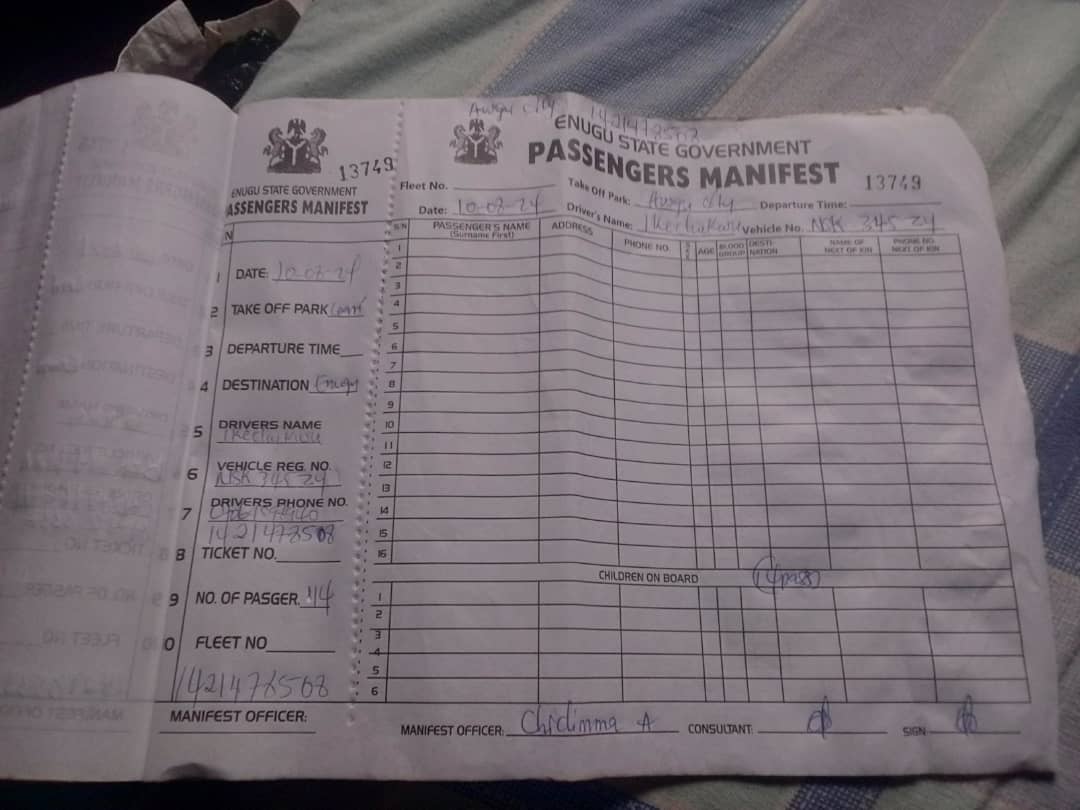 13749
ENUGU STATE GOVERNMENT
ASSENGERS MANIFEST
N
1 DATE: 10-08-24
2 TAKE OFF PARK
3 DEPARTURE TIME
4 DESTINATION Enugu
5 DRIVERS NAME
Ikechukwu
6 VEHICLE REG. NO.
NSK 345 ZY
7 DRIVERS PHONE NO.
1421478508
8 TICKET NO.
9 NO. OF PASGER. 14
0 FLEET NO
1421478508
MANIFEST OFFICER:
Awgu city 1421478508
ENUGU STATE GOVERNMENT
PASSENGERS MANIFEST 13749
Fleet No. Take Off Park: Awgu city Departure Time:
Date: 10-08-24 Driver's Name: Ikechukwu Vehicle No. NSK 345 ZY
S/N PASSENGER'S NAME (Surname First) ADDRESS PHONE NO. SEX AGE BLOOD GROUP DESTI-NATION NAME OF NEXT OF KIN PHONE NO. NEXT OF KIN
1
2
3
4
5
6
7
8
9
10
11
12
13
14
15
16
CHILDREN ON BOARD 14pass
1
2
3
4
5
6
MANIFEST OFFICER: Chidimma A CONSULTANT: SIGN